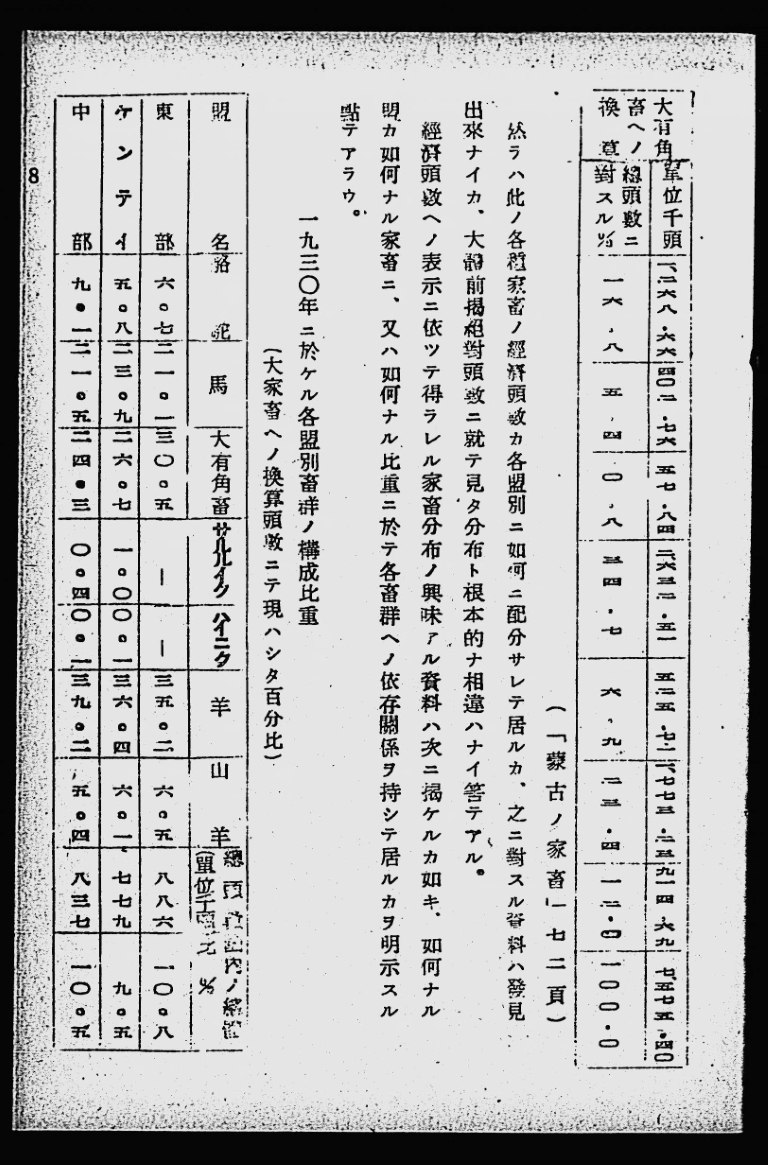 大有角
畜ヘノ
換算
單位千頭
總頭數ニ
對スル%
一、二六八・六六
四〇二・七六
五七・八四
二、六三二・五一
五二五・七二
一、七七三・二三
九一四・六九
七、五七五・四〇
一六・八
五・四
〇・八
三四・七
六・九
二三・四
一二・〇
一〇〇・〇
(「蒙古ノ家畜」一七二頁)
然ラハ此ノ各種家畜ノ經濟頭數カ各盟別ニ如何ニ配分サレテ居ルカ、之ニ對スル資料ハ發見
出來ナイカ、大體前揭絕對頭數ニ就テ見タ分布ト根本的ナ相違ハナイ筈テアル。
經濟頭數ヘノ表示ニ依ツテ得ラレル家畜分布ノ興味アル資料ハ次ニ揭ケルカ如キ、如何ナル
盟カ如何ナル家畜ニ、又ハ如何ナル比重ニ於テ各畜群ヘノ依存關係ヲ持シテ居ルカヲ明示スル
點テアラウ。
一九三〇年ニ於ケル各盟別畜群ノ構成比重
(大家畜ヘノ換算頭數ニテ現ハシタ百分比)
盟名 駱駝 馬 大有角畜 サルルイク ハイニク 羊 山羊 總頭數(單位千頭)
東部 六・七 二一・一 三〇・五 — — 三五・二 六・五 八八六 一〇・八
ケンテイ 五・八 二三・九 二六・七 一・〇 〇・一 三六・四 六・一 七七九 九・五
中部 九・一 二一・五 二四・三 〇・四 〇・一 三九・二 五・四 八三七 一〇・五
8